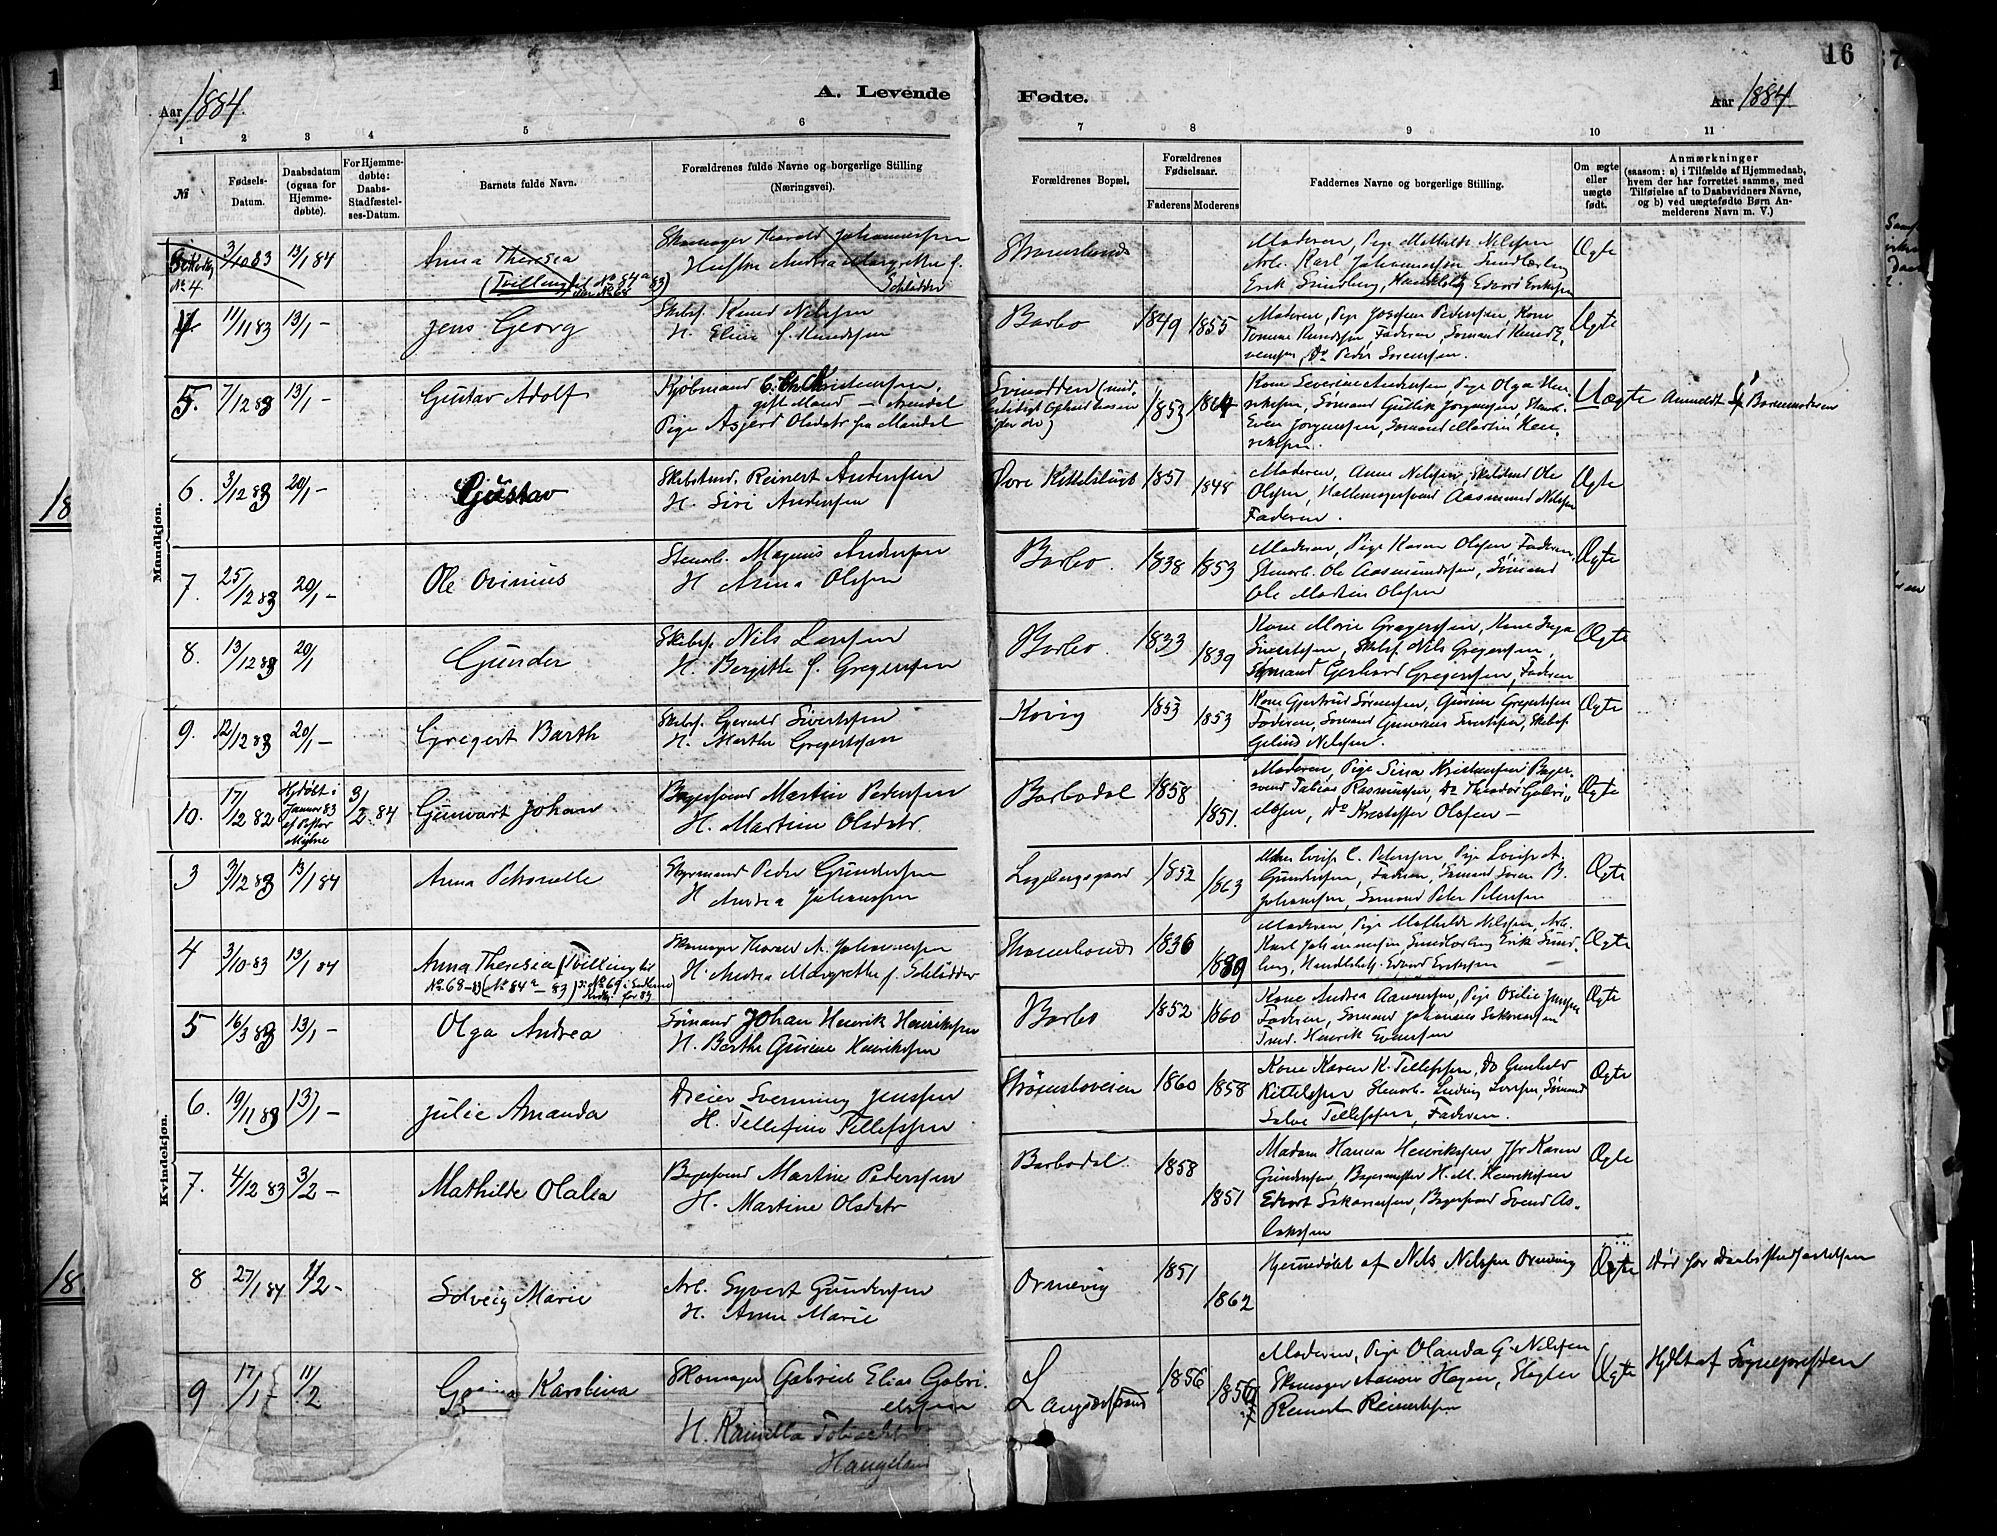 16
Aar 1884.
A. Levende
Fødte.
Aar 1884
1 2 3 4 5 6 7 8 9 10 11
№
Fødsels-Datum.
Daabsdatum (ogsaa for Hjemmedøbte).
For Hjemmedøbte: Daabs-Stadfæstelses-Datum.
Barnets fulde Navn.
Forældrenes fulde Navne og borgerlige Stilling (Næringsvei).
Forældrenes Bopæl.
Forældrenes Fødselsaar.
Faderens Moderens
Faddernes Navne og borgerlige Stilling.
Om ægte eller uægte født.
Anmærkninger
(saasom: a) i Tilfælde af Hjemmedaab, hvem der har forrettet samme, med Tilføielse af to Daabsvidners Navne, og b) ved uægtefødte Børn Anmelderens Navn m. V.)
Mandkjøn.
No 4
3/10 83 13/1 84 Anna Theresia
(Tvilling til No 84a 83)
Skomager Harald Johannessen
Hustru Andrea Margrethe f. Schlüdder
Moderen, Pige Mathilde Nilssen
Arb. Karl Johannessen
Ægte
4 11/11 83 13/1 – Jens Georg
Skibsf. Knud Nilssen
H. Eline f. Knudssen
Barbo 1849 1855
Moderen, Pige Josefine Pederssen, Kone
Ægte
5. 7/12 83 13/1 – Gustav Adolf
Kjøbmand C. Chr. Kristenssen,
gift Mand – Arendal
Pige Asjerd Olsdatr fra Mandal
1853 1864
Kone Severine Anderssen, Pige Olga Hen-
rikssen, Sømand Gullik Jørgenssen,
Even Jørgenssen, Sømand Martin Hen-
rikssen.
Uægte Anmeldt af Barnemoderen
6. 3/12 83 20/1 – Gustav
Skibstmd. Reinert Anderssen
H. Siri Anderssen
1851 1848
Moderen, Anne Nilssen, Skibstmd Ole
Olssen, Aasmund Nilssen
Faderen.
Ægte
7. 25/12 83 20/1 – Ole Ovinius
Stenarb. Magnus Anderssen
H Anna Olssen
Barbo. 1838 1853
Moderen, Pige Karen Olssen, Faderen,
Stenarb. Ole Aasmundssen, Sømand
Ole Martin Olssen
Ægte
8. 13/12 83 20/1 Gunder
Skibsf. Nils Larssen
H. Bergithe f. Gregerssen
Barbo. 1833 1839
Kone Marie Gregerssen, Kone Inga
Sivertssen, Skibsf. Nils Gregerssen,
Sømand Gerhard Gregerssen, Faderen
Ægte
9. 12/12 83 20/1 – Gregert Barth
Skibsf. Gerald Sivertssen
H. Marthe Gregertssen
Kovig 1853 1853
Kone Gjertrud Sørenssen, Gurine Gregertssen
Faderen, Sømand Gunerius Sivertssen, Skibsf
Nilssen.
Ægte
10. 17/12 82 Hjdøbt i Januar 83 af Pastor 3/2 84 Gunvart Johan
Bagersvend Martin Pederssen
H. Martine Olsdatr
Barbodal 1858 1851.
Moderen, Pige Sina Kristenssen, Bager-
svend Tobias Rasmussen, Do Theodor Gabri-
elssen, Do Kristoffer Olssen –
Ægte
Kvindekjøn.
3 3/12 83 13/1 84 Anna Petronelle
Styrmand Peder Gunderssen
H Andrea Johanssen
Langbergsgaard 1852 1863
Lovise C. Peterssen, Pige Lovise A.
Gunderssen, Faderen, Sømand Søren B.
Johanssen, Sømand Peter Peterssen
Ægte
4 3/10 83 13/1 84 Anna Theresia (Tvilling til
No 68-83 (No 84a – 83)
Skomager Harald A. Johannessen
H. Andrea Margrethe f. Schlüdder
1836 1839
Moderen, Pige Mathilde Nilssen, Arb.
Karl Johannessen Erik Sund-
berg, Edvard Erikssen
Ægte
5 16/3 83 13/1 – Olga Andrea
Sømand Johan Henrik Henrikssen
H. Berthe Gurine Henrikssen
Barbo 1852 1860
Kone Andrea Aanenssen, Pige Osilie Jenssen
Faderen, Sømand Johannes Sakariassen
Henrik Evenssen
Ægte
6. 19/11 83 13/1 – Julie Amanda
Dreier Svenning Jenssen
H. Tellefine Tellefssen
Strømsboveien 1860 1858
Kone Karen K. Tellefssen, Do Gunhild
Kittelssen Ludvig Larssen, Sømand
Salve Tellefssen, Faderen.
Ægte
7. 4/12 83 3/2 – Mathilde Olalia
Bagersvend Martin Pederssen
H. Martine Olsdatr
Barbodal. 1858 1851
Madam Hanna Henrikssen, Jfr Karen
Gunderssen, Bagermester H. M. Henrikssen
Edvart Sakariassen, Bagersvend Svend As-
lakssen
Ægte
8 27/1 84 11/2 – Solveig Marie
Arb. Syvert Gunderssen
H. Anne Marie
Ormevig 1851 1862
Hjemmedøbt af Nils Nilssen Ormevig
Ægte Død før Daabsstadfæstelsen
9 17/1 – 11/2 Karolina
Skomager Gabriel Elias Gabri-
elssen
H. Kamilla Tobiasdtr
Haugeland
Langsæstrand 1856 1856
Moderen, Pige Olanda G. Nilssen
Skomager Hagen, Slagter
Reinert Reinertssen
Ægte Hjdbt af Sognepresten
18
18